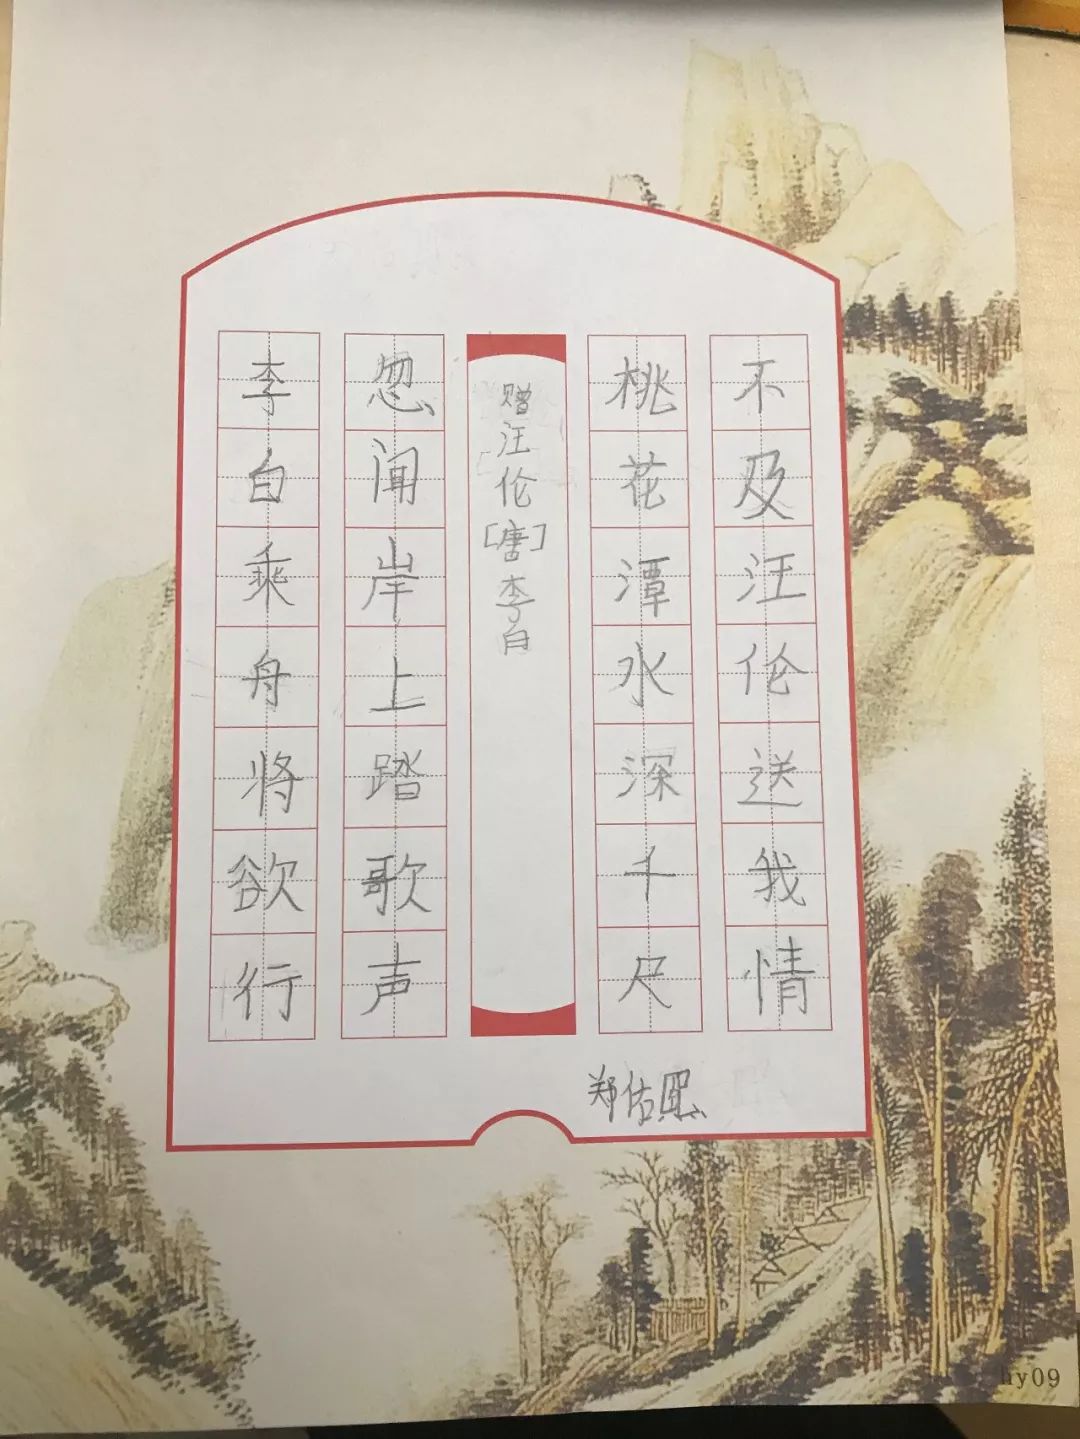 李白乘舟将欲行
忽闻岸上踏歌声
赠汪伦[唐]李白
桃花潭水深千尺
不及汪伦送我情
郑佑
hy09